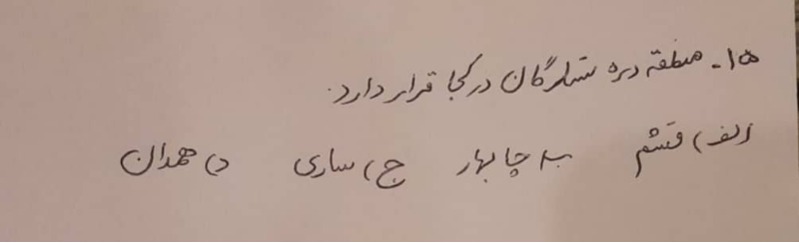 ۱۵- منطقه دره ستارگان در کجا قرار دارد.
الف) قشم ب) چابهار ج) ساری د) همدان